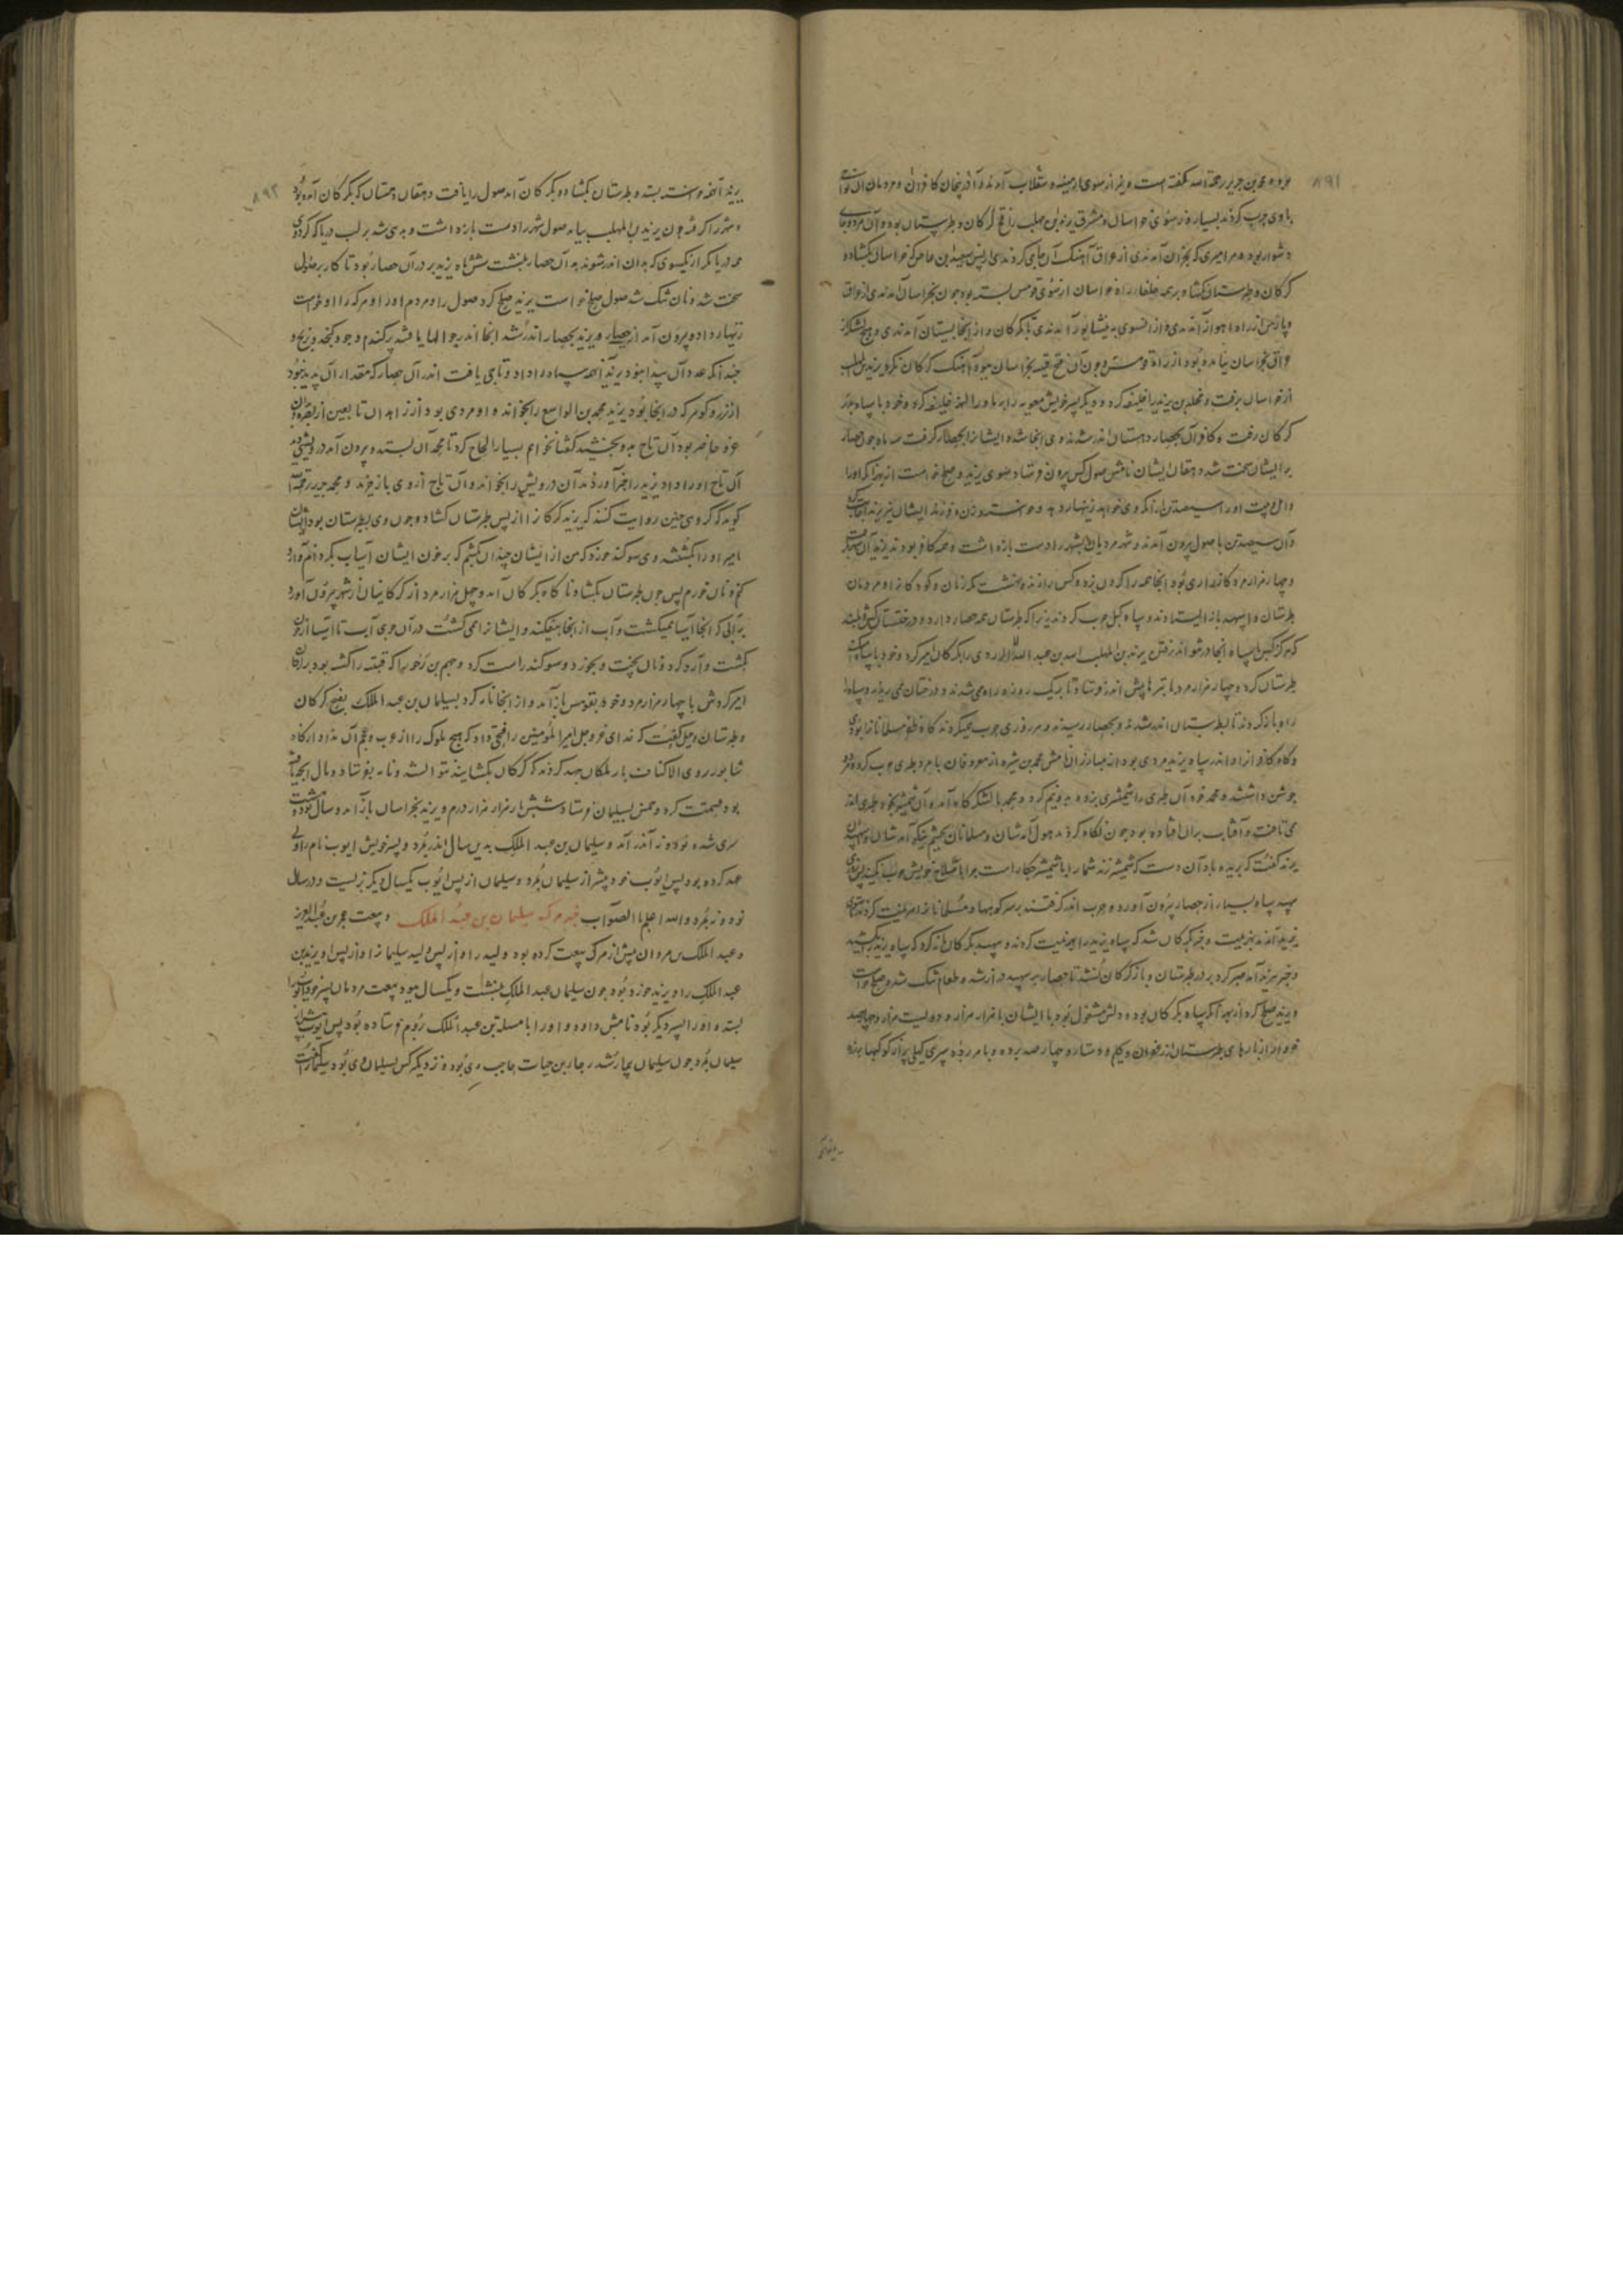 ۸۹۱
بود و محمد بن جریر رحمة الله گفته است و نیز از سوی ارمینیه و سقلاب آمدند و آذربیجان کافران و مردمان
با وی حرب کردند بسیار و از سوی خراسان و مشرق یزید بن مهلب را فتح گرگان و طبرستان بوده و آن
دشوار بود و هر امیری که بخراسان آمدندی از عراق آهنگ آن جای کردندی از پس سعید بن عاص که خراسان بگشاد و
گرگان و طبرستان بگشاد و بر همه خلفا راه خراسان از سوی قومس بسته بود چون بخراسان آمدندی از عراق
و پارس از راه اهواز آمدندی و از آنسوی به نیشابور آمدندی تا بگرگان و از آنجا
عراق بخراسان نیامده بود از راه قومس و چون آن فتح قتیبه بخراسان ببود آهنگ گرگان نکرد یزید بن المهلب
از خراسان برفت و مخلد بن یزید را خلیفه کرد و دیگر پسر خویش معویه را بماورا النهر خلیفه کرد و خود با سپاه بدر
گرگان رفت و کافران بحصار دهستان اندر شدند وی آنجا شد و ایشانرا بحصار گرفت سه ماه چون حصار
بر ایشان سخت شد دهقان ایشان نامش صول کس بیرون فرستاد سوی یزید و صلح خواست از بهر آنکه او را
و اهل بیت او را و سیصد تن را آنکه وی خواهد زینهار دهد و خواسته و زن و فرزند ایشان نیز یزید اجابت کرد
و آن سیصد تن با صول بیرون آمدند و شهر مردمان شهر را دست بازداشت و همه کافر بودند یزید آن
و چهار هزار مرد کارزاری بود آنجا همه را گردن بزد و کس را زنده نهشت مگر زنان و کودکان را و مردمان
طبرستان و اسپهبد باز ایستادند و سپاه گیل حرب کردند زیرا که طبرستان همه حصار دارد و درختستان کش و بلند
که هرگز کس سپاه آنجا در نتواند رفتن یزید بن المهلب اسد بن عبد الله الازدی را بگرگان امیر کرد و خود با سپاه آهنگ
طبرستان کرد و چهار هزار مرد با تبرها پیش اندر فرستاد تا بر یک روزه راه می شدند و درختان می بریدند و سپاه را
راه باز کردند تا بطبرستان اندر شدند و بحصار رسیدند و هر روزی حرب همیکردند گاه ظفر مسلمانان را بودی
و گاه کافران را و اندر سپاه یزید مردی بود از مبارزان نامش محمد بن سبره از معروفان با مرد طبری حرب کرد و هر دو
جوشن داشتند و محمد مر آن طبری را شمشیری بزد و بدو نیم کرد و محمد بالشکرگاه آمد و آن شمشیر بخود طبری اندر
می تافت و آفتاب بر آن افتاده بود چون نگاه کردند هول آمدشان و مسلمانان بچشم نیکو آمد شان و سپهبد
یزید گفت که بریده باد آن دست که شمشیر زند شمارا با شمشیر چکار است
سپهبد سپاه بسیار از حصار بیرون آورد و حرب اندر گرفتند بر سر کوهها و مسلمانان را هزیمت کردند تا سوی
یزید آمدند بهزیمت و خبر بگرگان شد که سپاه یزید را هزیمت کردند و سپهبد بگرگان نامه کرد که سپاه یزید را بکشید
و خبر بیزید آمد صبر کرد بر در طبرستان و باز گرگان نشد تا حصار بر سپهبد دراز شد و طعام تنگ شد و صلح خواست
و یزید صلح کرد از بهر آنکه سپاه بگرگان بود و دلش مشغول بود با ایشان با هزار هزار و دویست هزار و چهارصد
خروار از بارهای طبرستان از زعفران و گلیم و دستار و چهار صد برده و با هر برده سپری گیلی پر از کوکبها بزده
۸۹۲
یزید آنهمه خواسته بستد و طبرستان بگشاد و بگرگان آمد صول را یافت دهقان دهستان که بگرگان آمده بود
و شهر را گرفته چون یزید بن المهلب بیامد صول شهر را دست بازداشت و بدهی شد بر لب دریا که گرد وی
همه دریا مگر از یکسوی که بدان اندر شوند بدان حصار بنشست شش ماه یزید بر در آن حصار بود تا کار بر صول
سخت شد و نان تنگ شد صول صلح خواست یزید صلح کرد صول را و مردم او را و هر که را او خواست
زینهار داد و بیرون آمد از حصار و یزید بحصار اندر شد آنجا اندر جوالها یافتند پر گندم و جو و کنجد و برنج و
چندانکه عدد آن پیدا نبود یزید آنهمه سپاه را داد و تاجی یافت اندر آن حصار که مقدار آن پدید نبود
از زر و گوهر که در آنجا بود یزید محمد بن الواسع را بخواند و او مردی بود از زاهدان تابعین از بصره و بدان
غزو حاضر بود آن تاج بدو بخشید گفتا نخواهم بسیار الحاح کرد تا محمد آن بستد و بیرون آمد درویشی دید
آن تاج او را داد یزید را خبر آوردند آن درویش را بخواند و آن تاج از وی باز خرید و محمد جریر رحمة الله
گوید که گروهی چنین روایت کنند که یزید گرگان را از پس طبرستان گشاد و چون وی بطبرستان بود ایشان
امیر او را بکشتند وی سوگند خورد که من از ایشان چندان بکشم که بر خون ایشان آسیاب بگردانم و آرد
کنم و نان خورم پس چون طبرستان بگشاد ناگاه بگرگان آمد و چهل هزار مرد از گرگانیان از شهر بیرون آورد
بر آبی که آنجا آسیا همیگشت و آب از آنجا بیفکند و ایشانرا همی کشت در آن جوی آب تا آسیا از خون
بگشت و آرد کرد و نان پخت و بخورد و سوگند راست کرد و جهم بن زحر را که قتیبه را کشته بود بر گرگان
امیر کردش با چهار هزار مرد و خود بقومس باز آمد و از آنجا نامه کرد بسلیمان بن عبد الملک بفتح گرگان
و طبرستان و گفت که خدای عز و جل امیر المؤمنین را فتحی داد که هیچ ملوک را از عرب و عجم آن نداد از گاه
شاپور ذوی الاکتاف باز ملکان جهد کردند که گرگان بگشایند نتوانستند و نامه بفرستاد و مال آنجه یافته
بود قسمت کرد و خمس بسلیمان فرستاد شش بار هزار هزار درم و یزید بخراسان باز آمد و سال نود و هشت
سپری شده نود و نه اندر آمد و سلیمان بن عبد الملک بدین سال اندر بمرد و پسر خویش ایوب نام را ولی
عهد کرده بود پس ایوب خود پیشتر از سلیمان بمرد و سلیمان از پس ایوب یکسال دیگر بزیست و در سال
نود و نه بمرد والله اعلم بالصواب خبر مرگ سلیمان بن عبد الملک و بیعت عمر بن عبد العزیز
و عبد الملک بن مروان پیش از مرگ بیعت کرده بود ولید را و از پس ولید سلیمان را و از پس او یزید بن
عبد الملک را و یزید خرد بود چون سلیمان عبد الملک بنشست و یکسال ببود بیعت مردمان پسر خود ایوب را
بستد و او را پسر دیگر بود نامش داود و او را با مسلمة بن عبد الملک بروم فرستاده بود پس ایوب پیش از
سلیمان بمرد چون سلیمان بیمار شد رجا بن حیات حاجب وی بود و نزدیکتر کس بسلیمان وی بود